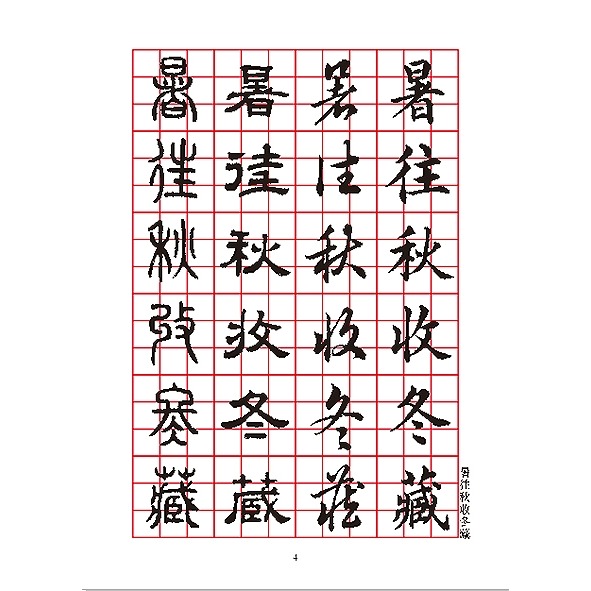 暑往秋收冬藏
暑往秋收冬藏
暑往秋收冬藏
暑往秋收冬藏
暑往秋收冬藏
4